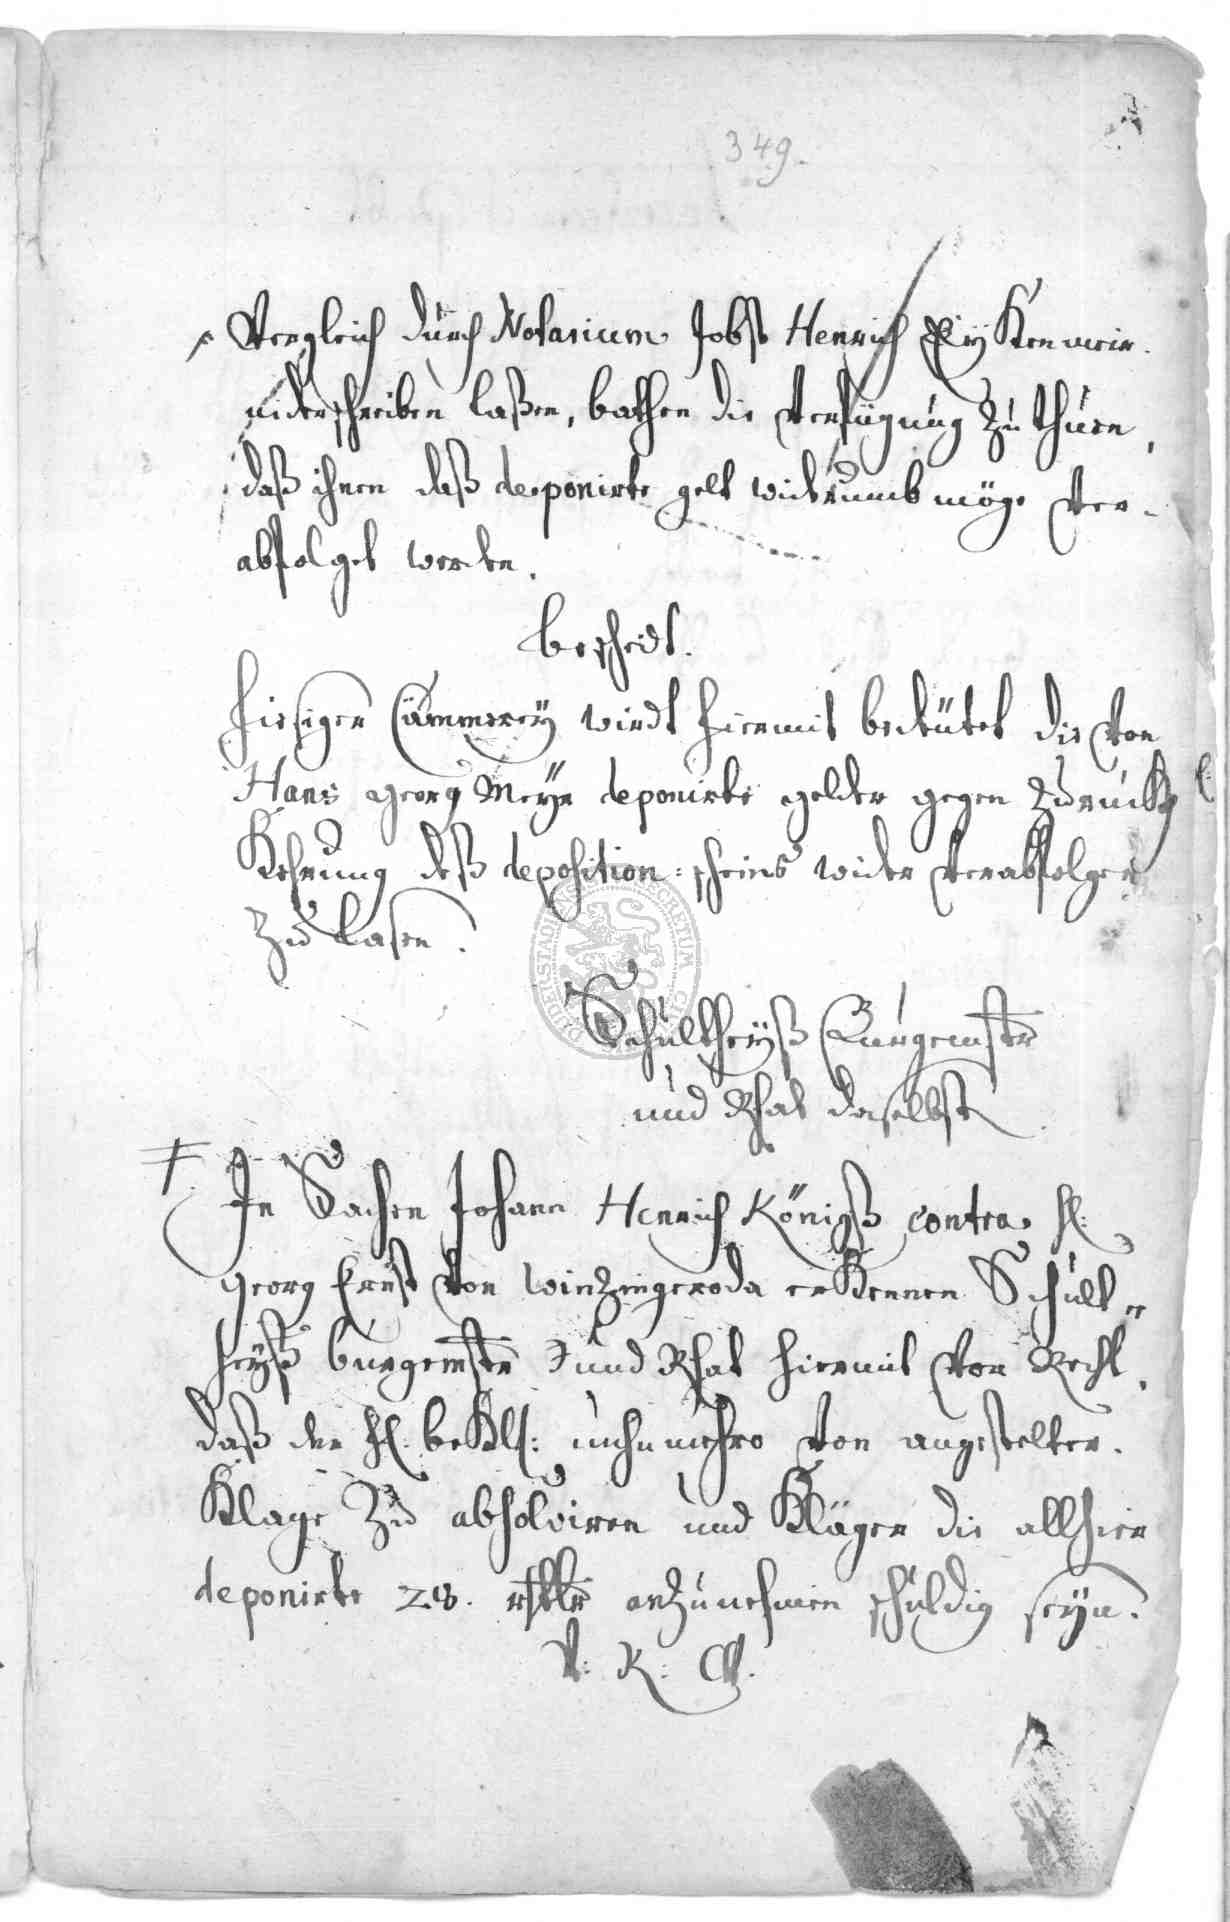 349.
Vergleich durch Notarium Jobst Henrich
niderschreiben laßen, bathen die verfügung zu thuen,
daß ihnen daß deponirte gelt widerumb möge ver-
abfolget werden.
bescheidt.
hiesiger Cämmerey wirdt hiermit bedeütet die von
Hans georg Meÿr deponirte gelder gegen zurück
Kehrung deß deposition: scheins wider verabfolgen
zu lasen.
Schultheÿß Burgemstr
und Rhat daselbst
In Sachen Johann Henrich Königß contra H:
georg Ernst von Winzingeroda erkennen Schult-
heyß burgemstr und Rhat hiermit vor Recht,
daß der H: bekl: nuhnmehro von angestelter
Klage zu absolviren und Kläger die allhier
deponirte 28. rthlr anzunehmen schuldig seÿn.
V: R: W.
SECRETUM